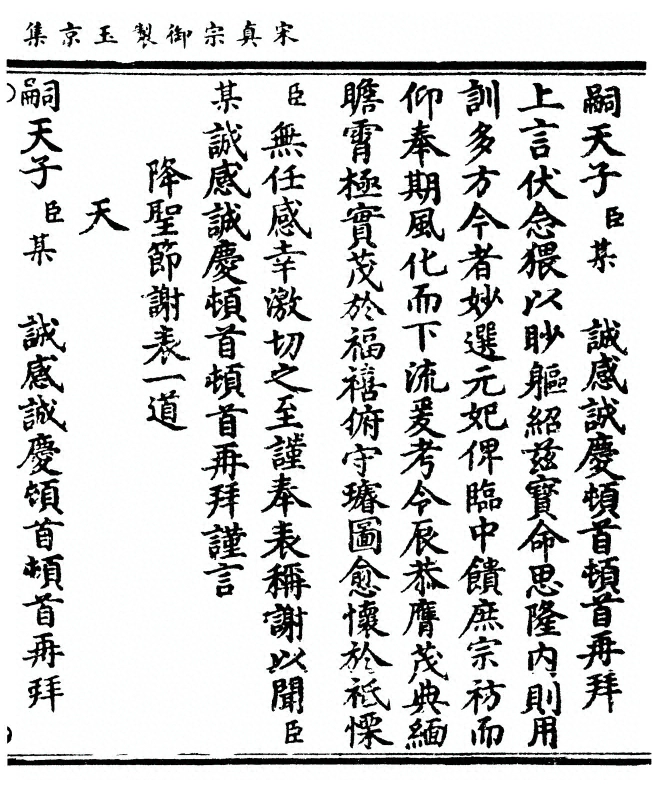 宋真宗御製玉京集
嗣天子臣某　誠感誠慶頓首頓首再拜
上言伏念猥以眇軀紹兹寳命思隆内則用
訓多方今者妙選元妃俾臨中饋庶宗祊而
仰奉期風化而下流爰考令辰恭膺茂典緬
瞻霄極實茂於福禧俯守璿圖愈懷於祗慄
臣無任感幸激切之至謹奉表稱謝以聞臣
某誠感誠慶頓首頓首再拜謹言
降聖節謝表一道
天
嗣天子臣某　誠感誠慶頓首頓首再拜